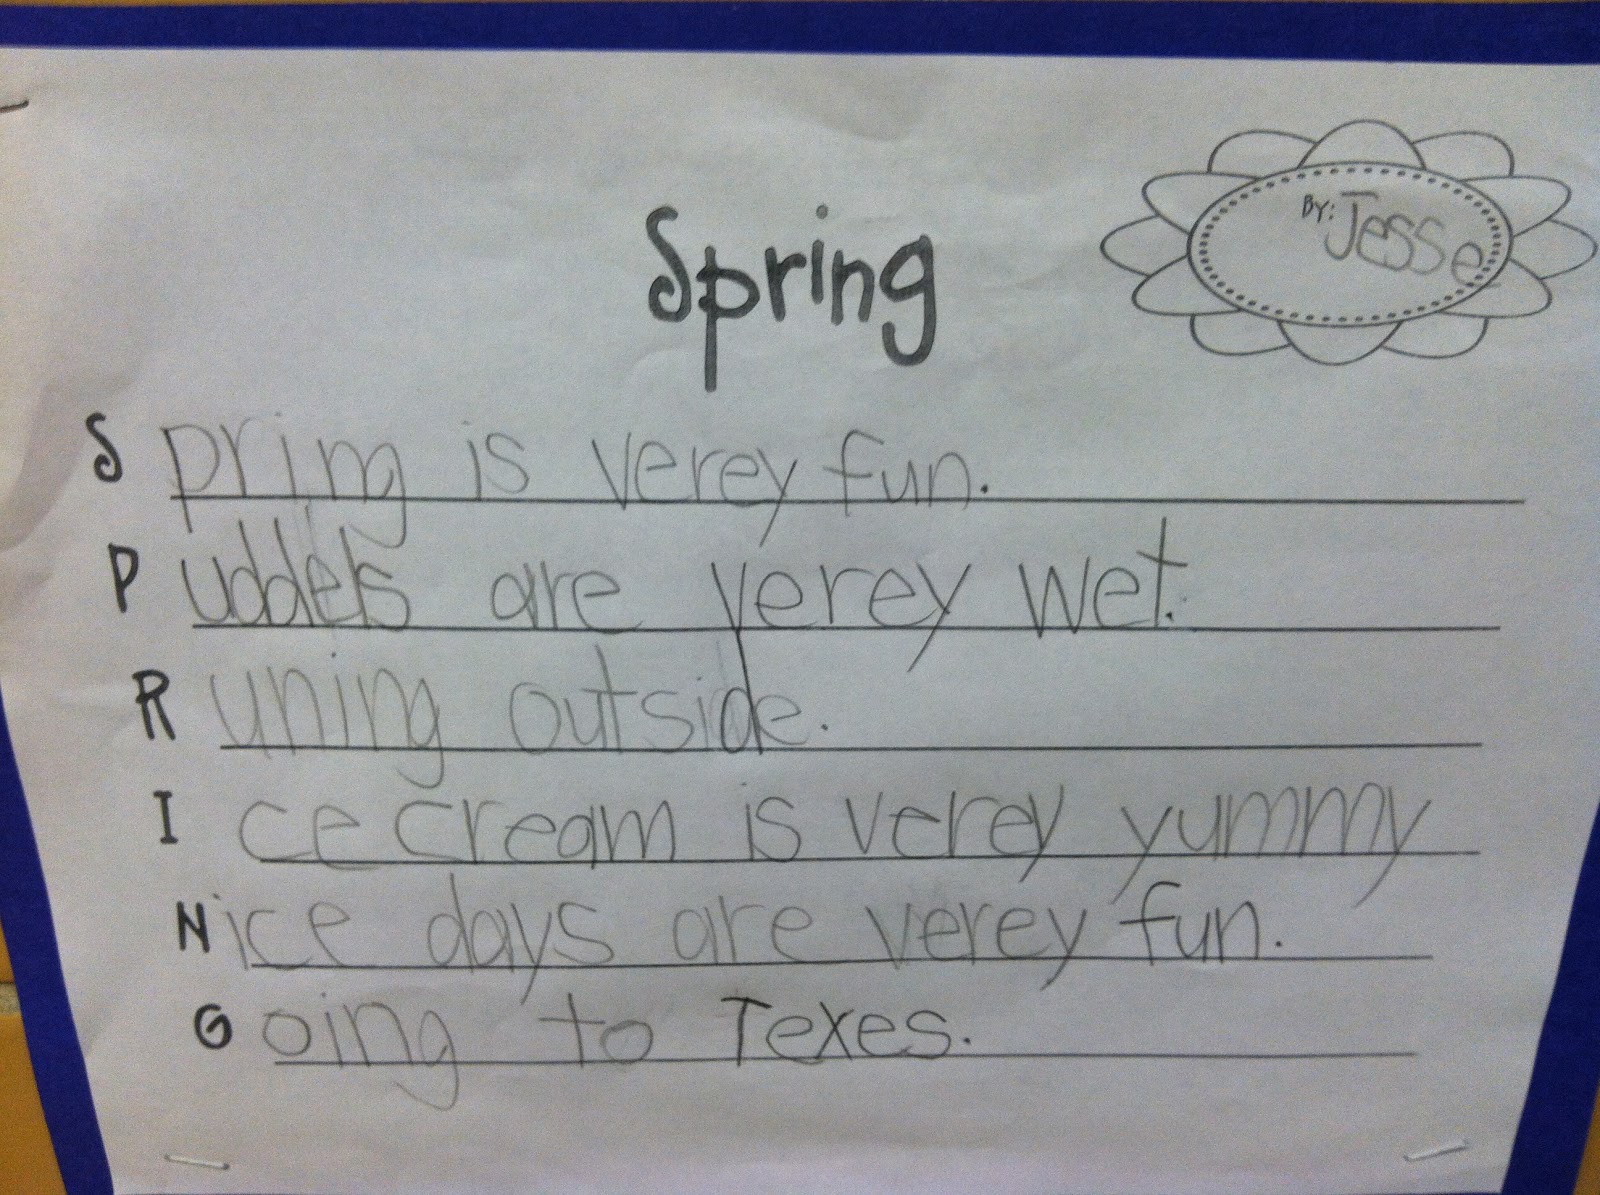 BY: Jesse
Spring
Spring is verey fun.
Puddels are verey wet.
Runing outside.
Ice cream is verey yummy
Nice days are verey fun.
Going to Texes.